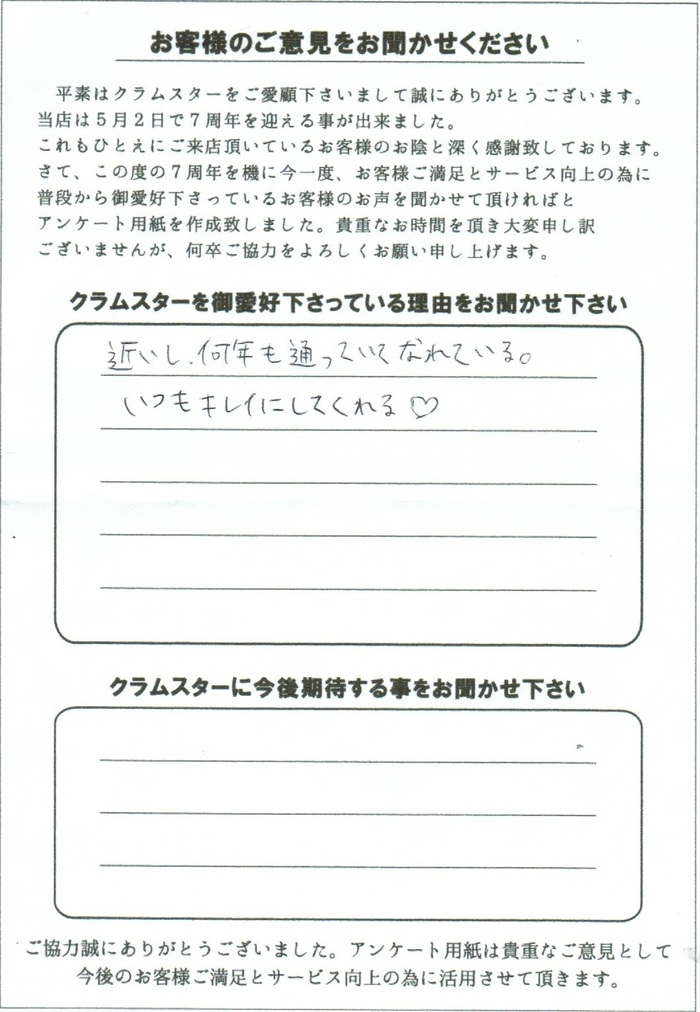 お客様のご意見をお聞かせください
平素はクラムスターをご愛顧下さいまして誠にありがとうございます。
当店は５月２日で７周年を迎える事が出来ました。
これもひとえにご来店頂いているお客様のお陰と深く感謝致しております。
さて、この度の７周年を機に今一度、お客様ご満足とサービス向上の為に
普段から御愛好下さっているお客様のお声を聞かせて頂ければと
アンケート用紙を作成致しました。貴重なお時間を頂き大変申し訳
ございませんが、何卒ご協力をよろしくお願い申し上げます。
クラムスターを御愛好下さっている理由をお聞かせ下さい
近いし、何年も通っていてなれている。
いつもキレイにしてくれる♡
クラムスターに今後期待する事をお聞かせ下さい
ご協力誠にありがとうございました。アンケート用紙は貴重なご意見として
今後のお客様ご満足とサービス向上の為に活用させて頂きます。